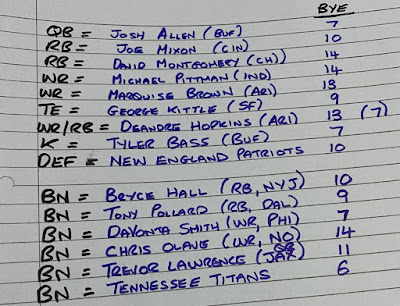 BYE
QB = JOSH ALLEN (BUF) 7
RB = JOE MIXON (CIN) 10
RB = DAVID MONTGOMERY (CHI) 14
WR = MICHAEL PITTMAN (IND) 14
WR = MARQUISE BROWN (ARI) 13
TE = GEORGE KITTLE (SF) 9
WR/RB = DEANDRE HOPKINS (ARI) 13 (7)
K = TYLER BASS (BUF) 7
DEF = NEW ENGLAND PATRIOTS 10
BN = BRYCE HALL (RB, NYJ) 10
BN = TONY POLLARD (RB, DAL) 9
BN = DAVONTA SMITH (WR, PHI) 7
BN = CHRIS OLAVE (WR, NO) 14
BN = TREVOR LAWRENCE (QB JAX) 11
BN = TENNESSEE TITANS 6